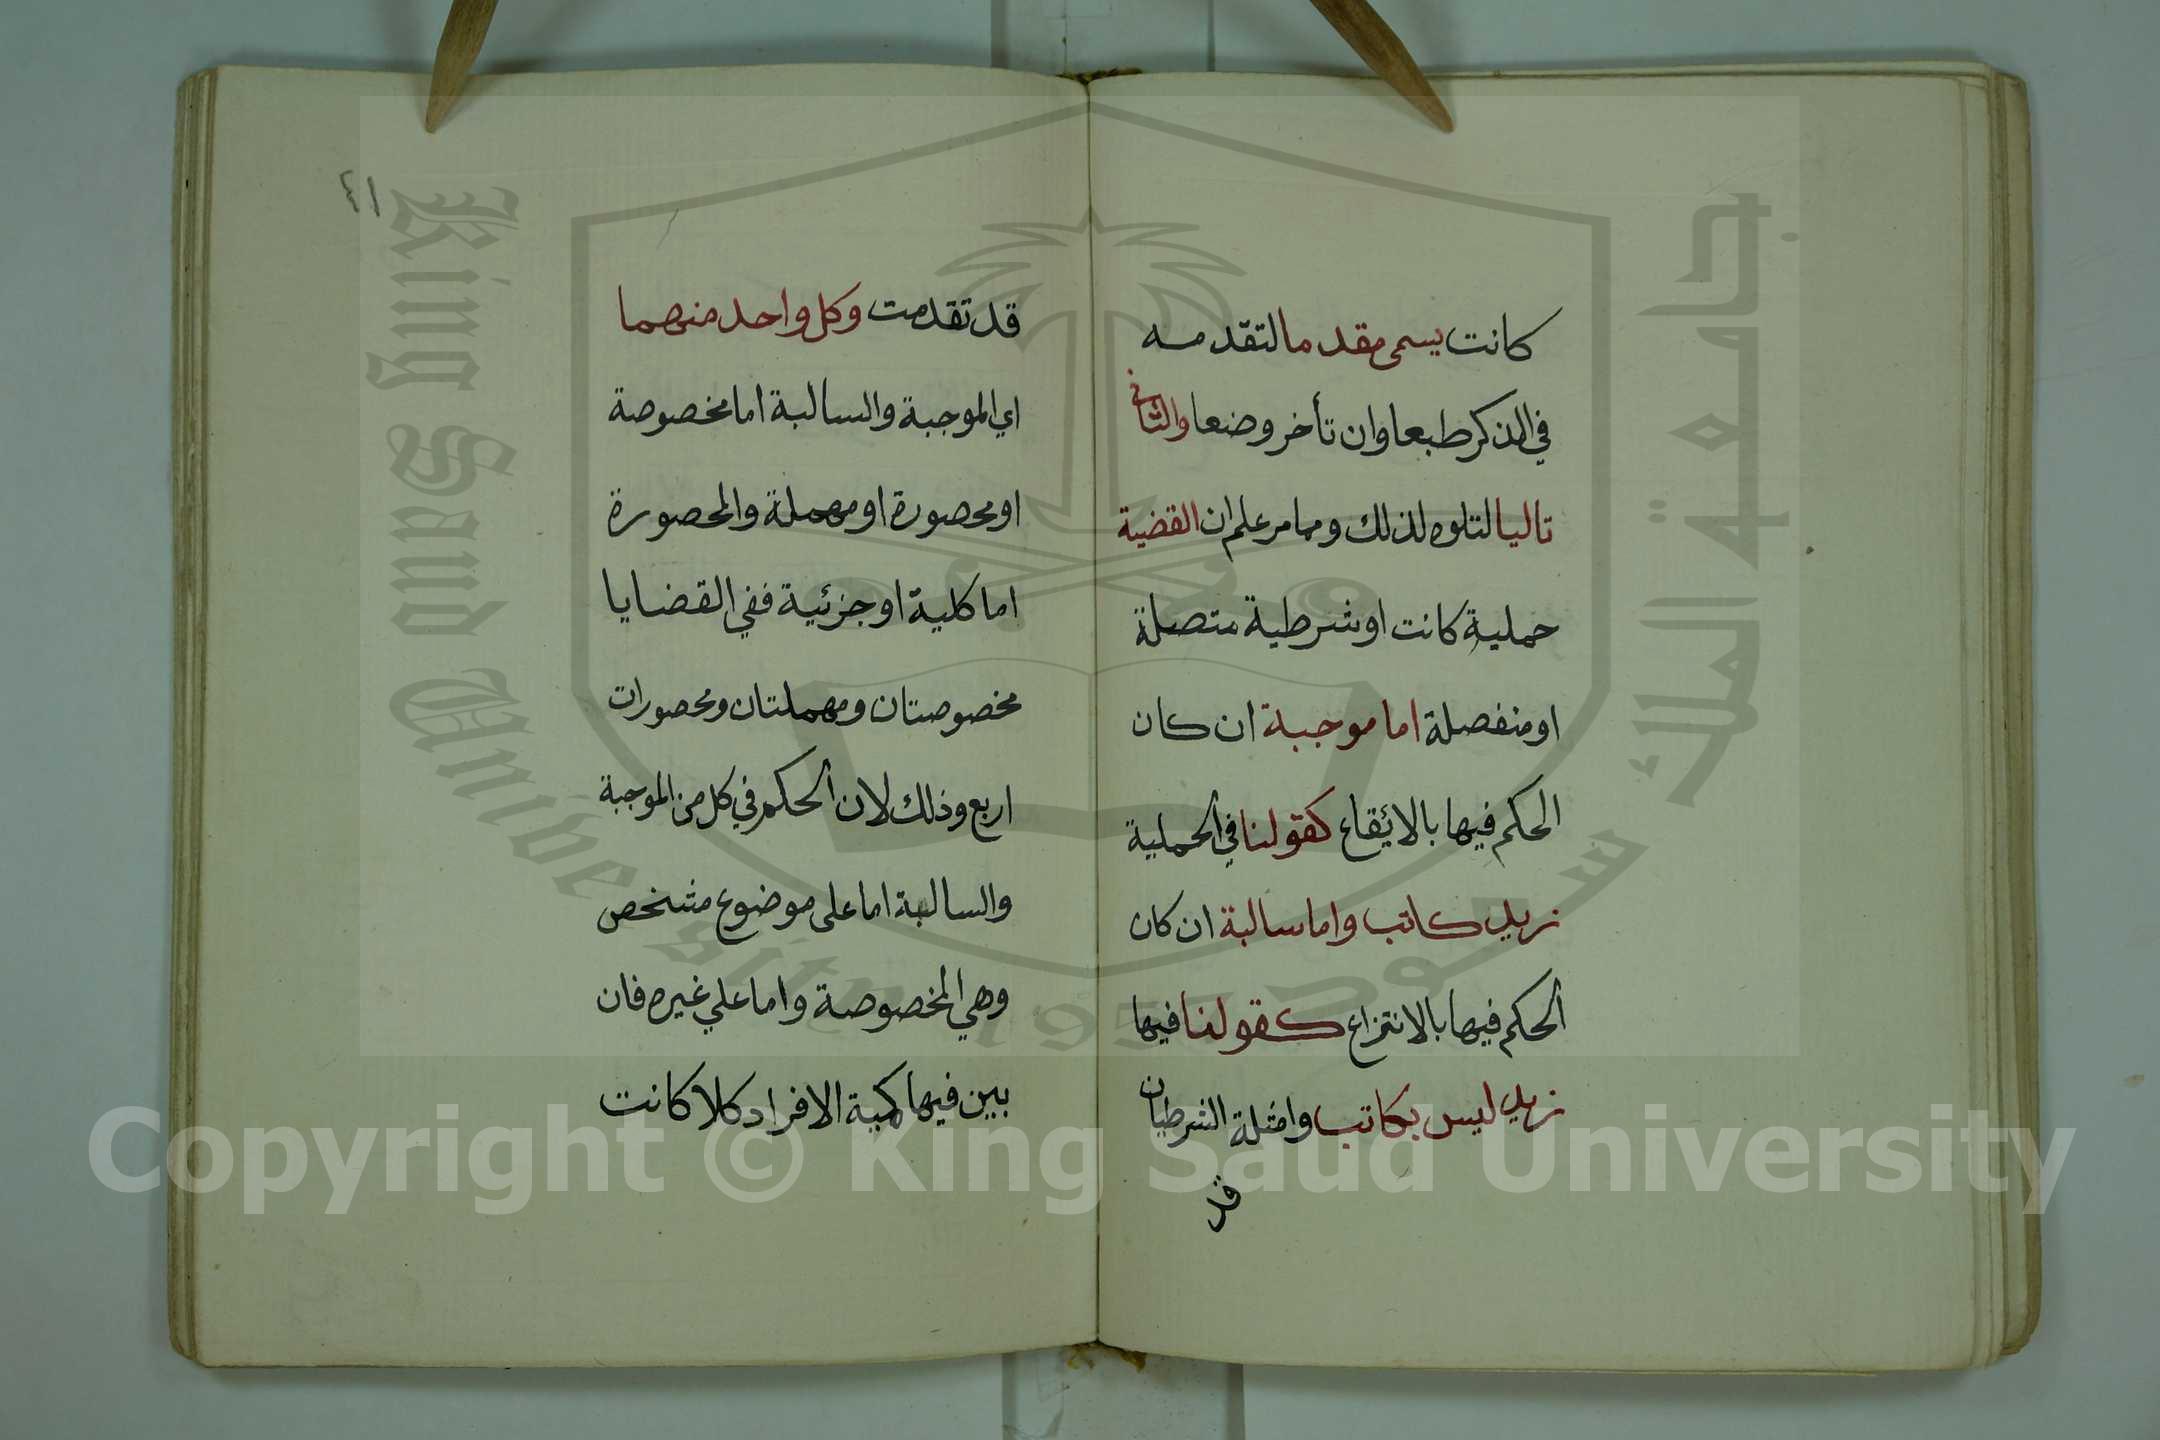 كانت يسمى مقدما لتقدمه
في الذكر طبعا وان تأخر وضعا والثاني
تاليا لتلوه لذلك ومما مر علم ان القضية
حملية كانت او شرطية متصلة
او منفصلة اما موجبة ان كان
الحكم فيها بالائقاع كقولنا في الحملية
زيد كاتب واما سالبة ان كان
الحكم فيها بالانتزاع كقولنا فيها
زيد ليس بكاتب وامثلة الشرطيان
قد
٤١
قد تقدمت وكل واحد منهما
اي الموجبة والسالبة اما مخصوصة
او محصورة او مهملة والمحصورة
اما كلية او جزئية ففي القضايا
مخصوصتان ومهملتان ومحصورات
اربع وذلك لان الحكم في كل من الموجبة
والسالبة اما على موضوع مشخص
وهي المخصوصة واما علي غيره فان
بين فيها كمية الافراد كلا كانت
جامعة الملك سعود
King Saud University
1957
Copyright © King Saud University